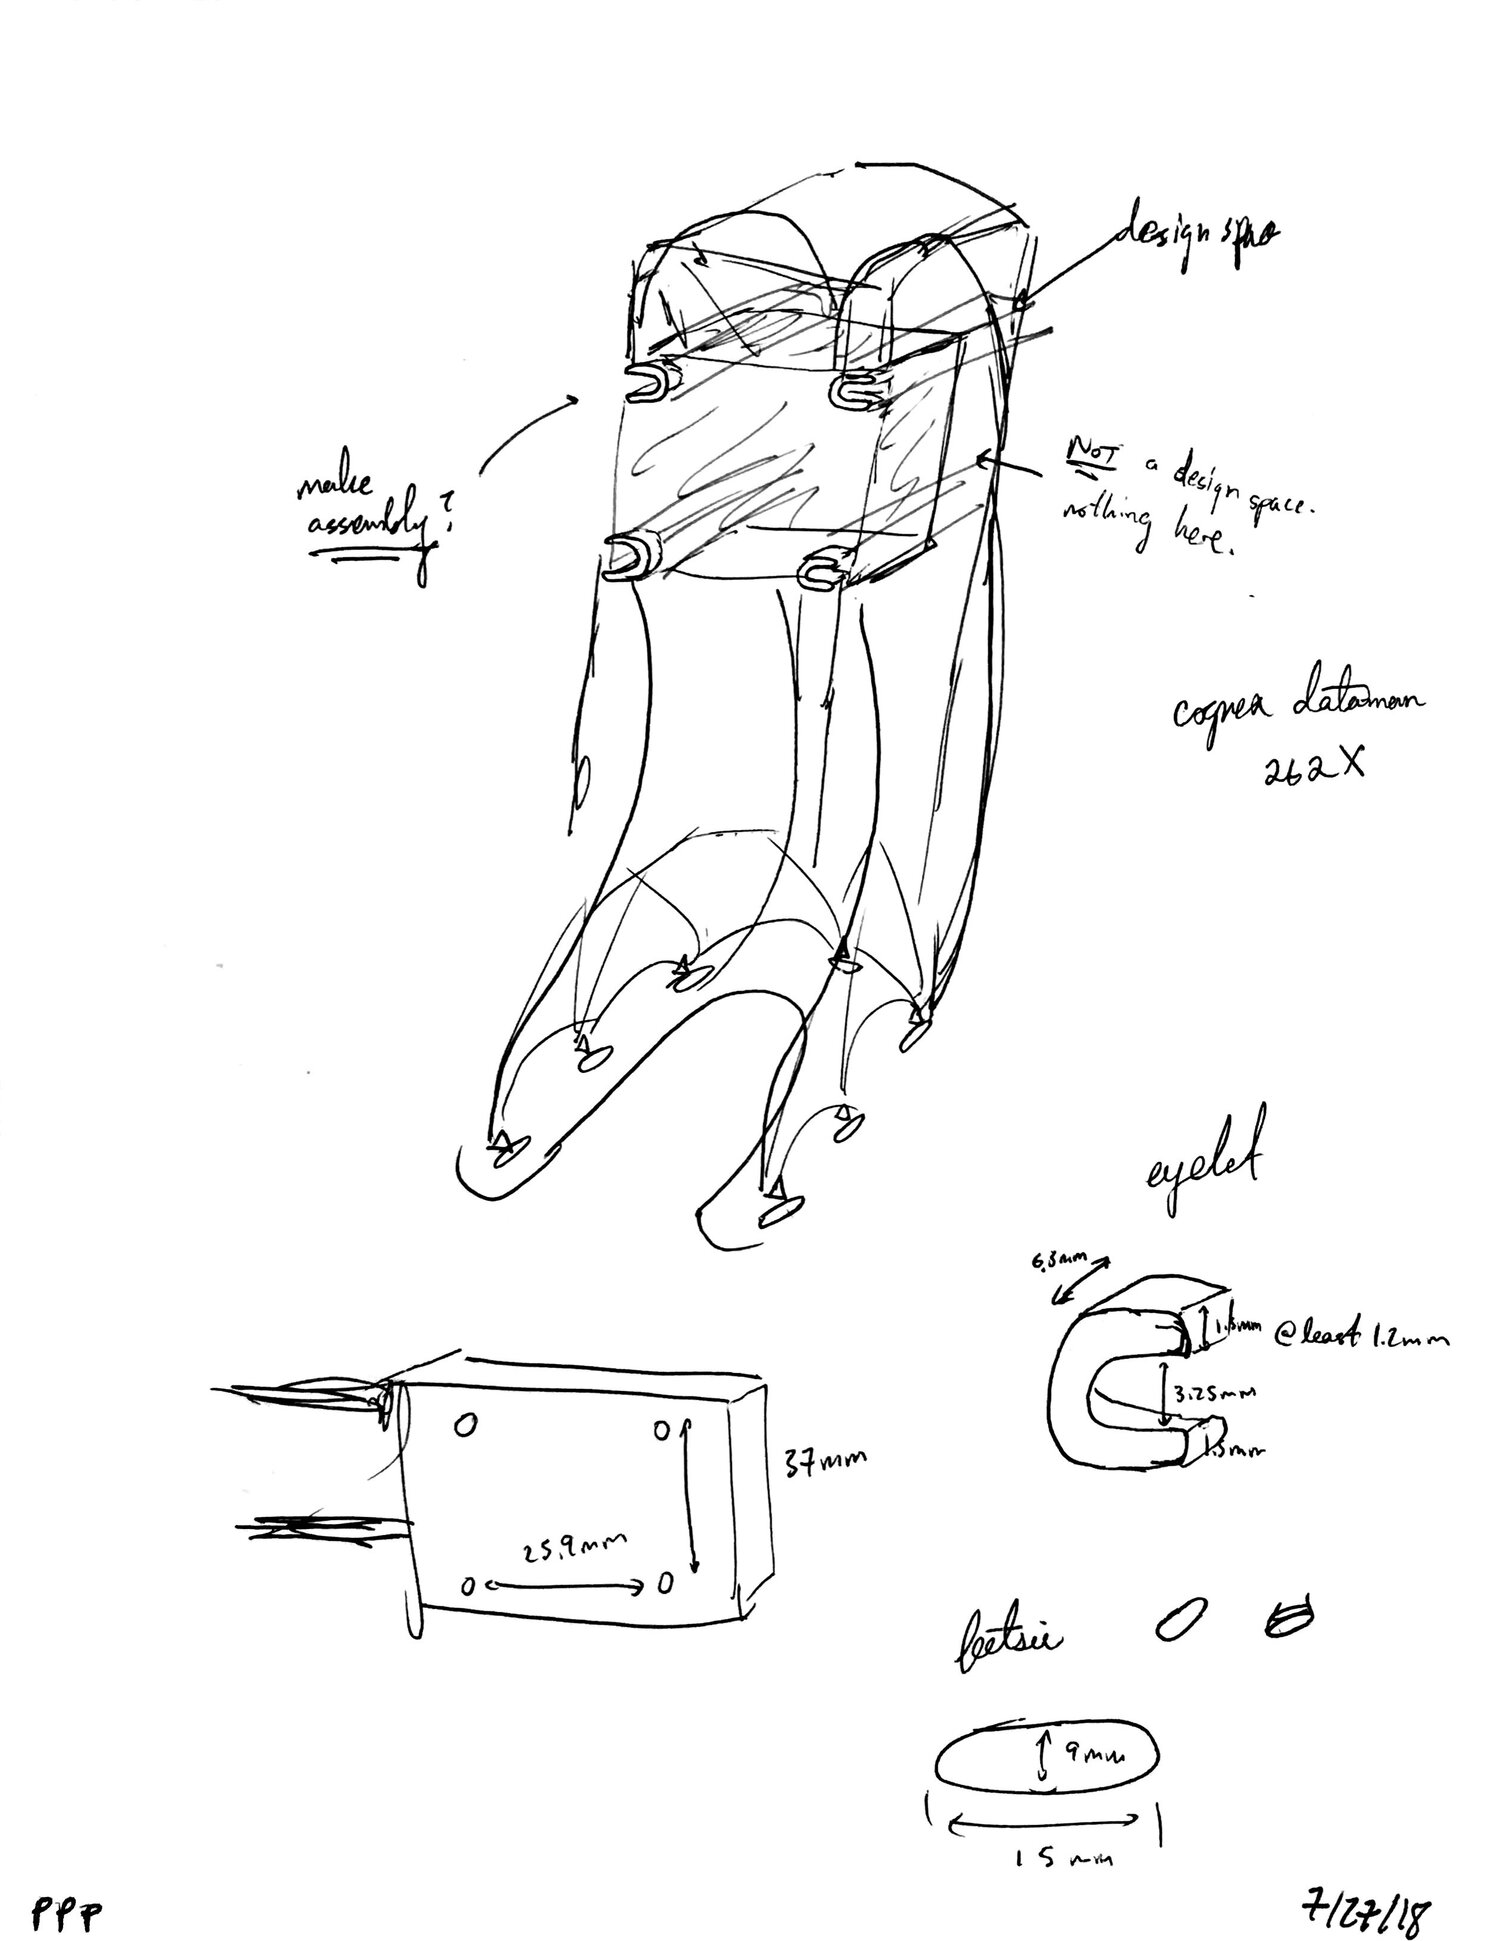 design
make
assembly?
NOT a design space.
nothing here.
cognex dataman
262X
eyelet
6.3mm
1.5mm @least 1.2mm
3.25mm
1.5mm
37mm
25.9mm
feetsie
9mm
15mm
PPP
7/27/18